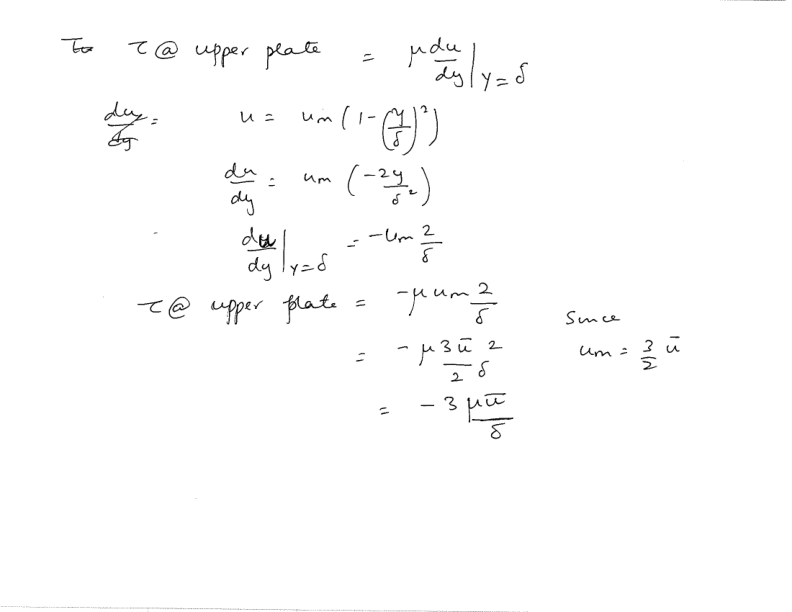 To τ @ upper plate = μ du/dy |y=δ
du/dy = u = um (1 - (y/δ)²)
du/dy = um (-2y/δ²)
du/dy |y=δ = -um 2/δ
τ @ upper plate = -μ um 2/δ Since
= -μ 3ū 2/2 δ um = 3/2 ū
= -3 μū/δ